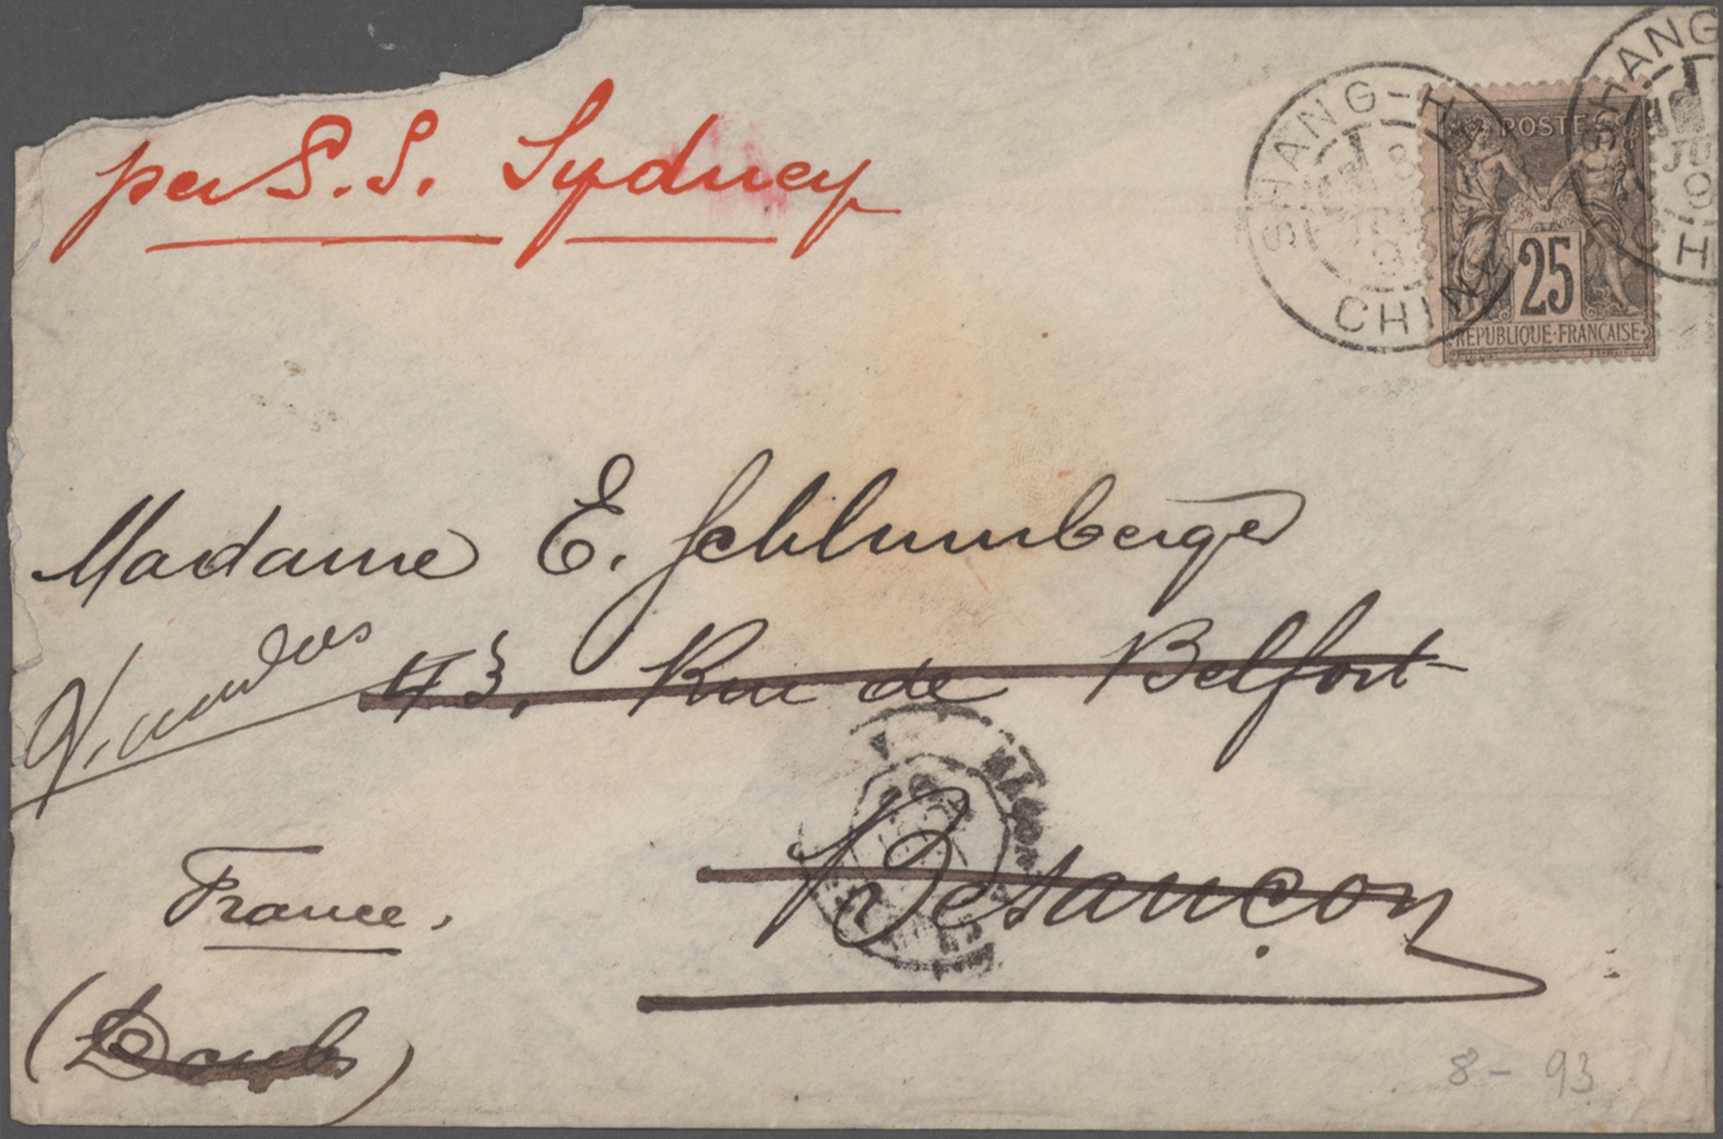 per S.S. Sydney
SHANG-H
CHINE
SHANG
JU
CH
POSTE
25
REPUBLIQUE·FRANÇAISE
Madame E. Schlumberger
43, Rue de Belfort
Besançon
France.
(Doubs)
8-93